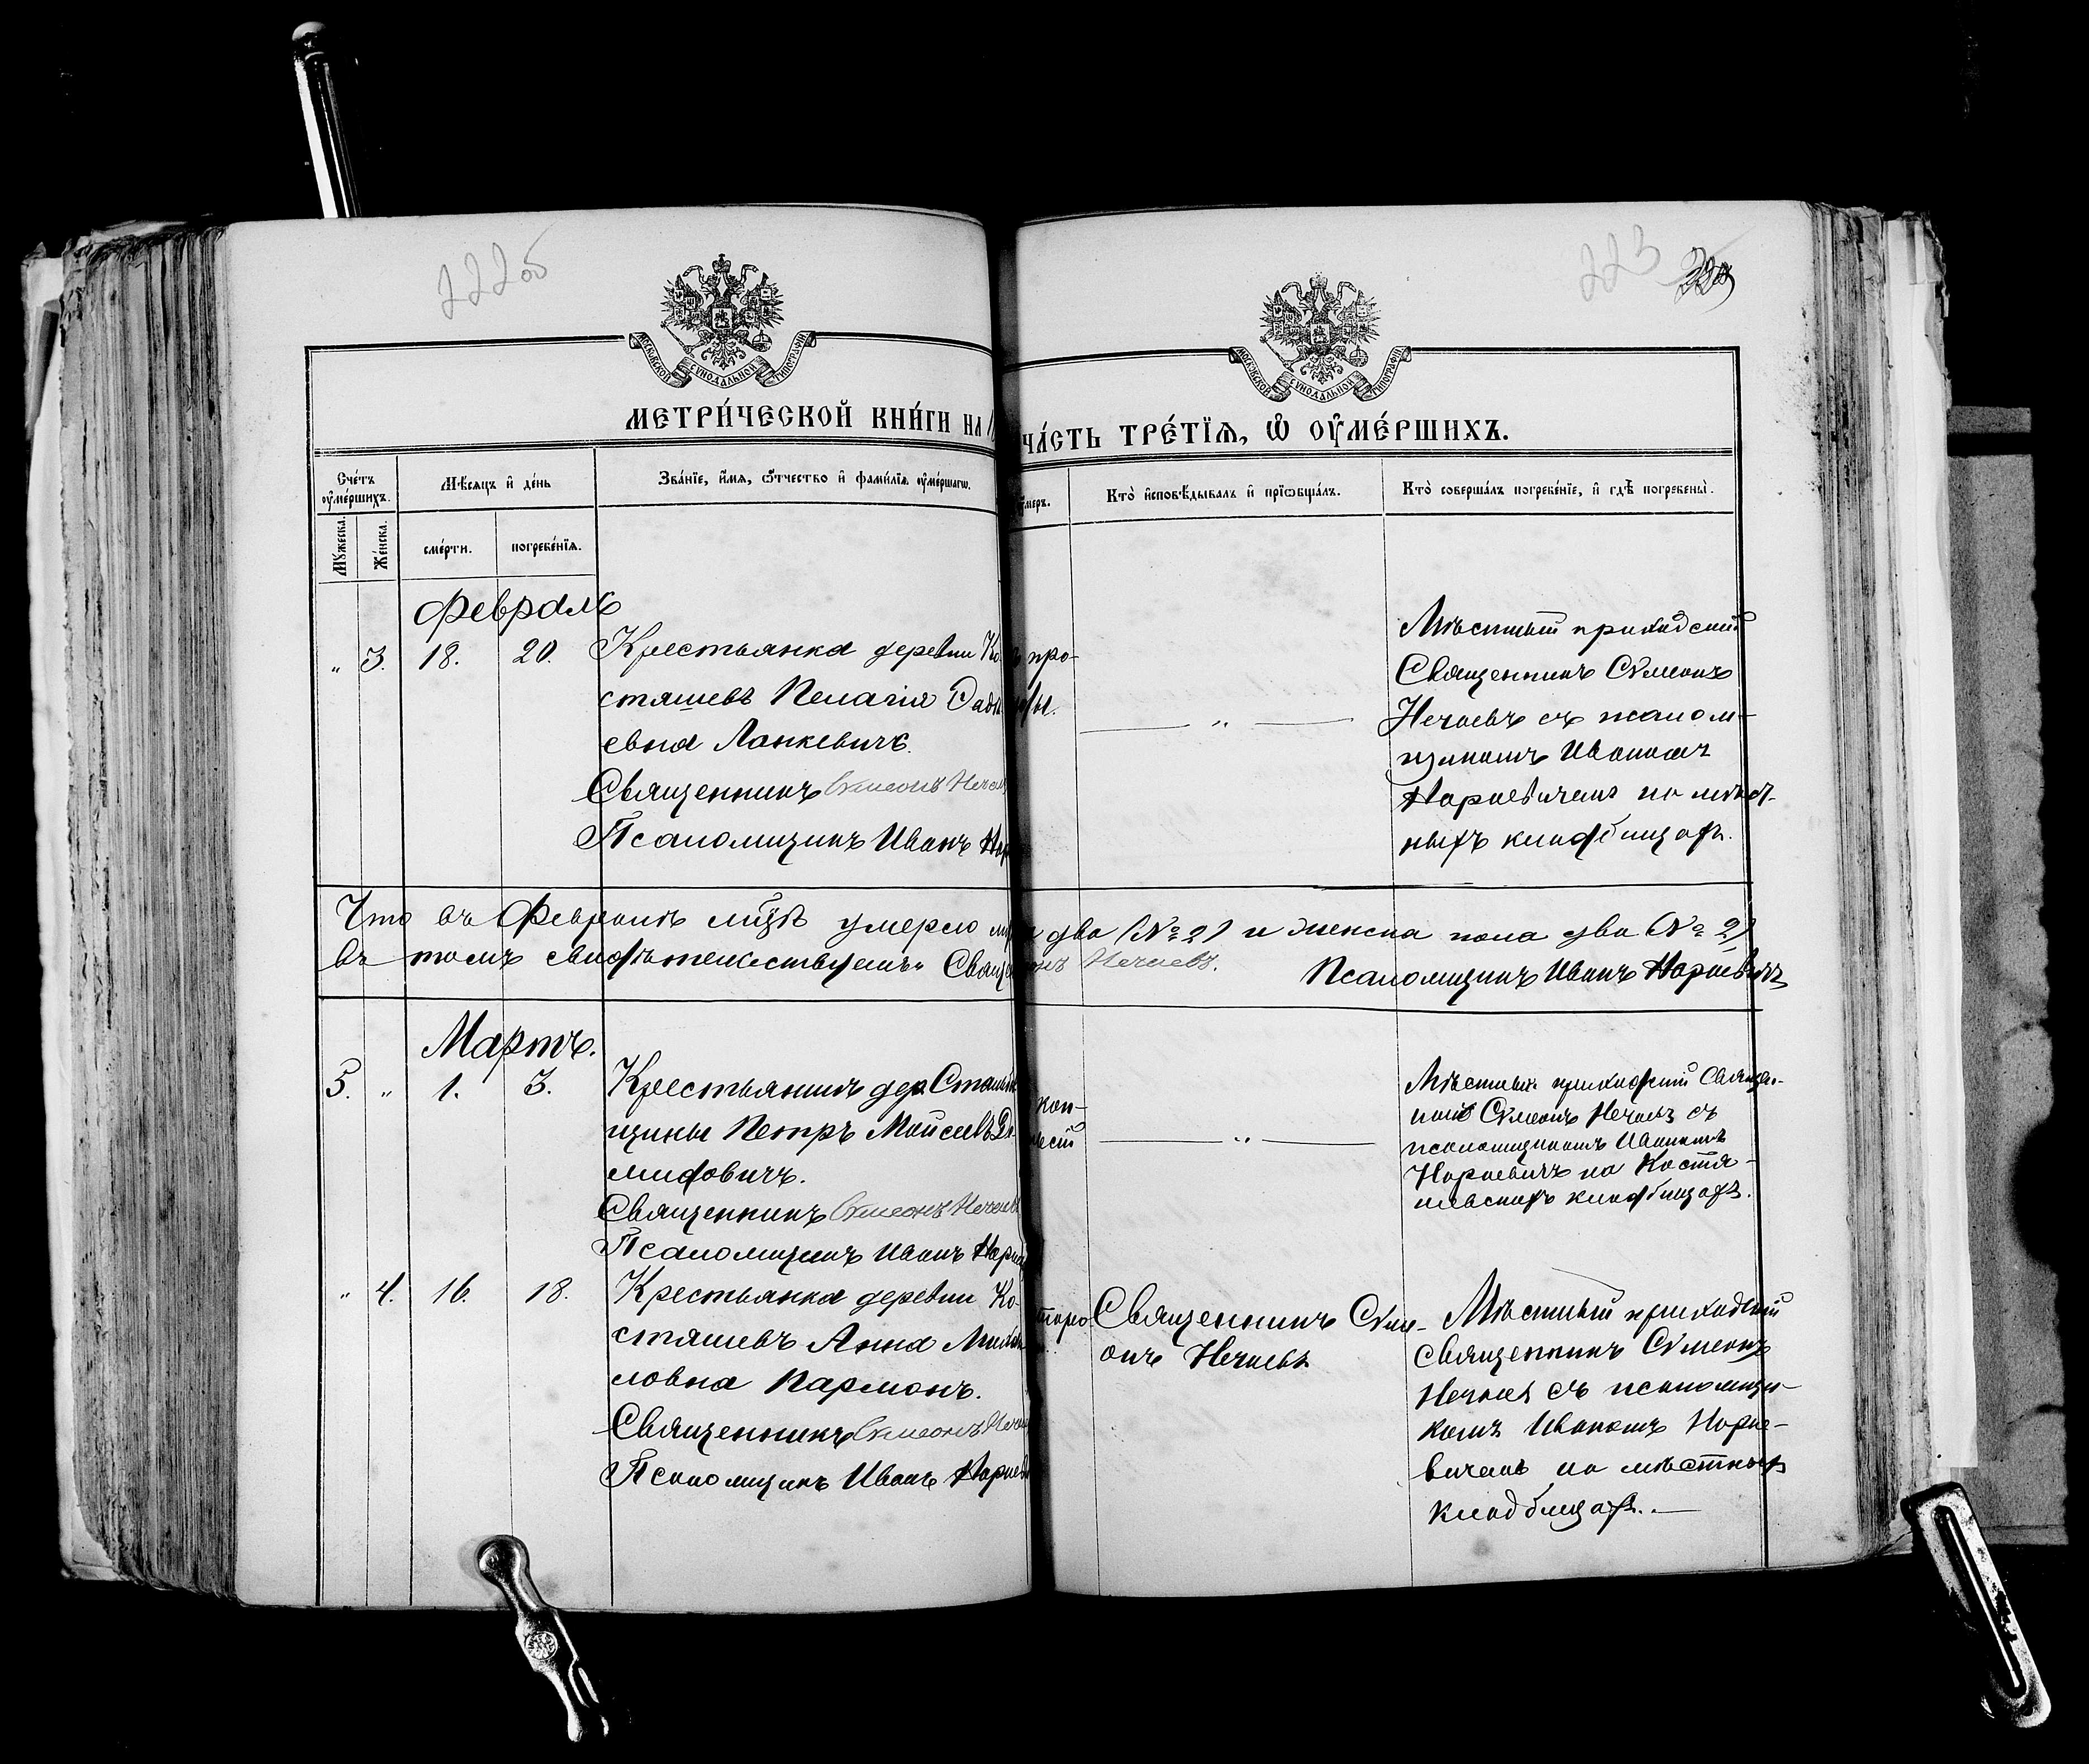 222об
223
МОСКОВСКОЙ СѴНОДАЛЬНОЙ ТИПОГРАФІИ
МОСКОВСКОЙ СѴНОДАЛЬНОЙ ТИПОГРАФІИ
МЕТРИ́ЧЕСКОЙ КНИ́ГИ НА
ЧА́СТЬ ТРЕ́ТЇѦ, Ѽ ОУМЕ́РШИХЪ.
Сче́тъ оуме́ршихъ.
Мѣ́сѧцъ и де́нь
Зва́нїе, и́мѧ, ѻ́тчество и фами́лїѧ оуме́ршагѡ.
Кто̀ исповѣ́дывалъ и прїѡбща́лъ.
Кто̀ соверша́лъ погребе́нїе, и гдѣ̀ погребены̀.
Мꙋжеска.
Же́нска.
сме́рти.
погребе́нїѧ.
Февраль
„ 3. 18. 20. Крестьянка деревни Ко-
стяшевъ Пелагія
евна Ланкевичъ.
Священникъ Сѵмеонъ Нечаевъ
Псаломщикъ Иванъ
— „ —
Мѣстный приходскій
Священникъ Сѵмеонъ
Нечаевъ съ псалом-
щикомъ Иваномъ
Наркевичемъ на мѣст-
ныхъ кладбищахъ.
Что въ Февралѣ мцѣ умерло два (№ 2) и женска пола два (№ 2)
въ томъ свидѣтельствуемъ: Нечаевъ. Псаломщикъ Иванъ Наркевичъ
Мартъ.
5. „ 1. 3. Крестьянинъ дер.
щины Петръ Мойсеевъ
мидовичъ.
Священникъ Сѵмеонъ Нечаевъ
Псаломщикъ Иванъ
— „ —
Мѣстный приходскій Священ-
никъ Сѵмеонъ Нечаевъ съ
псаломщикомъ Иваномъ
Наркевичъ на Костя-
шевскихъ кладбищахъ.
„ 4. 16. 18. Крестьянка деревни Ко-
стяшевъ Анна
ловна Пармонъ.
Священникъ Сѵмеонъ
Псаломщикъ Иванъ
Священникъ Сѵме-
онъ Нечаевъ
Мѣстный приходскій
Священникъ Сѵмеонъ
Нечаевъ съ псаломщи-
комъ Иваномъ Нарке-
вичемъ на мѣстныхъ
кладбищахъ. —